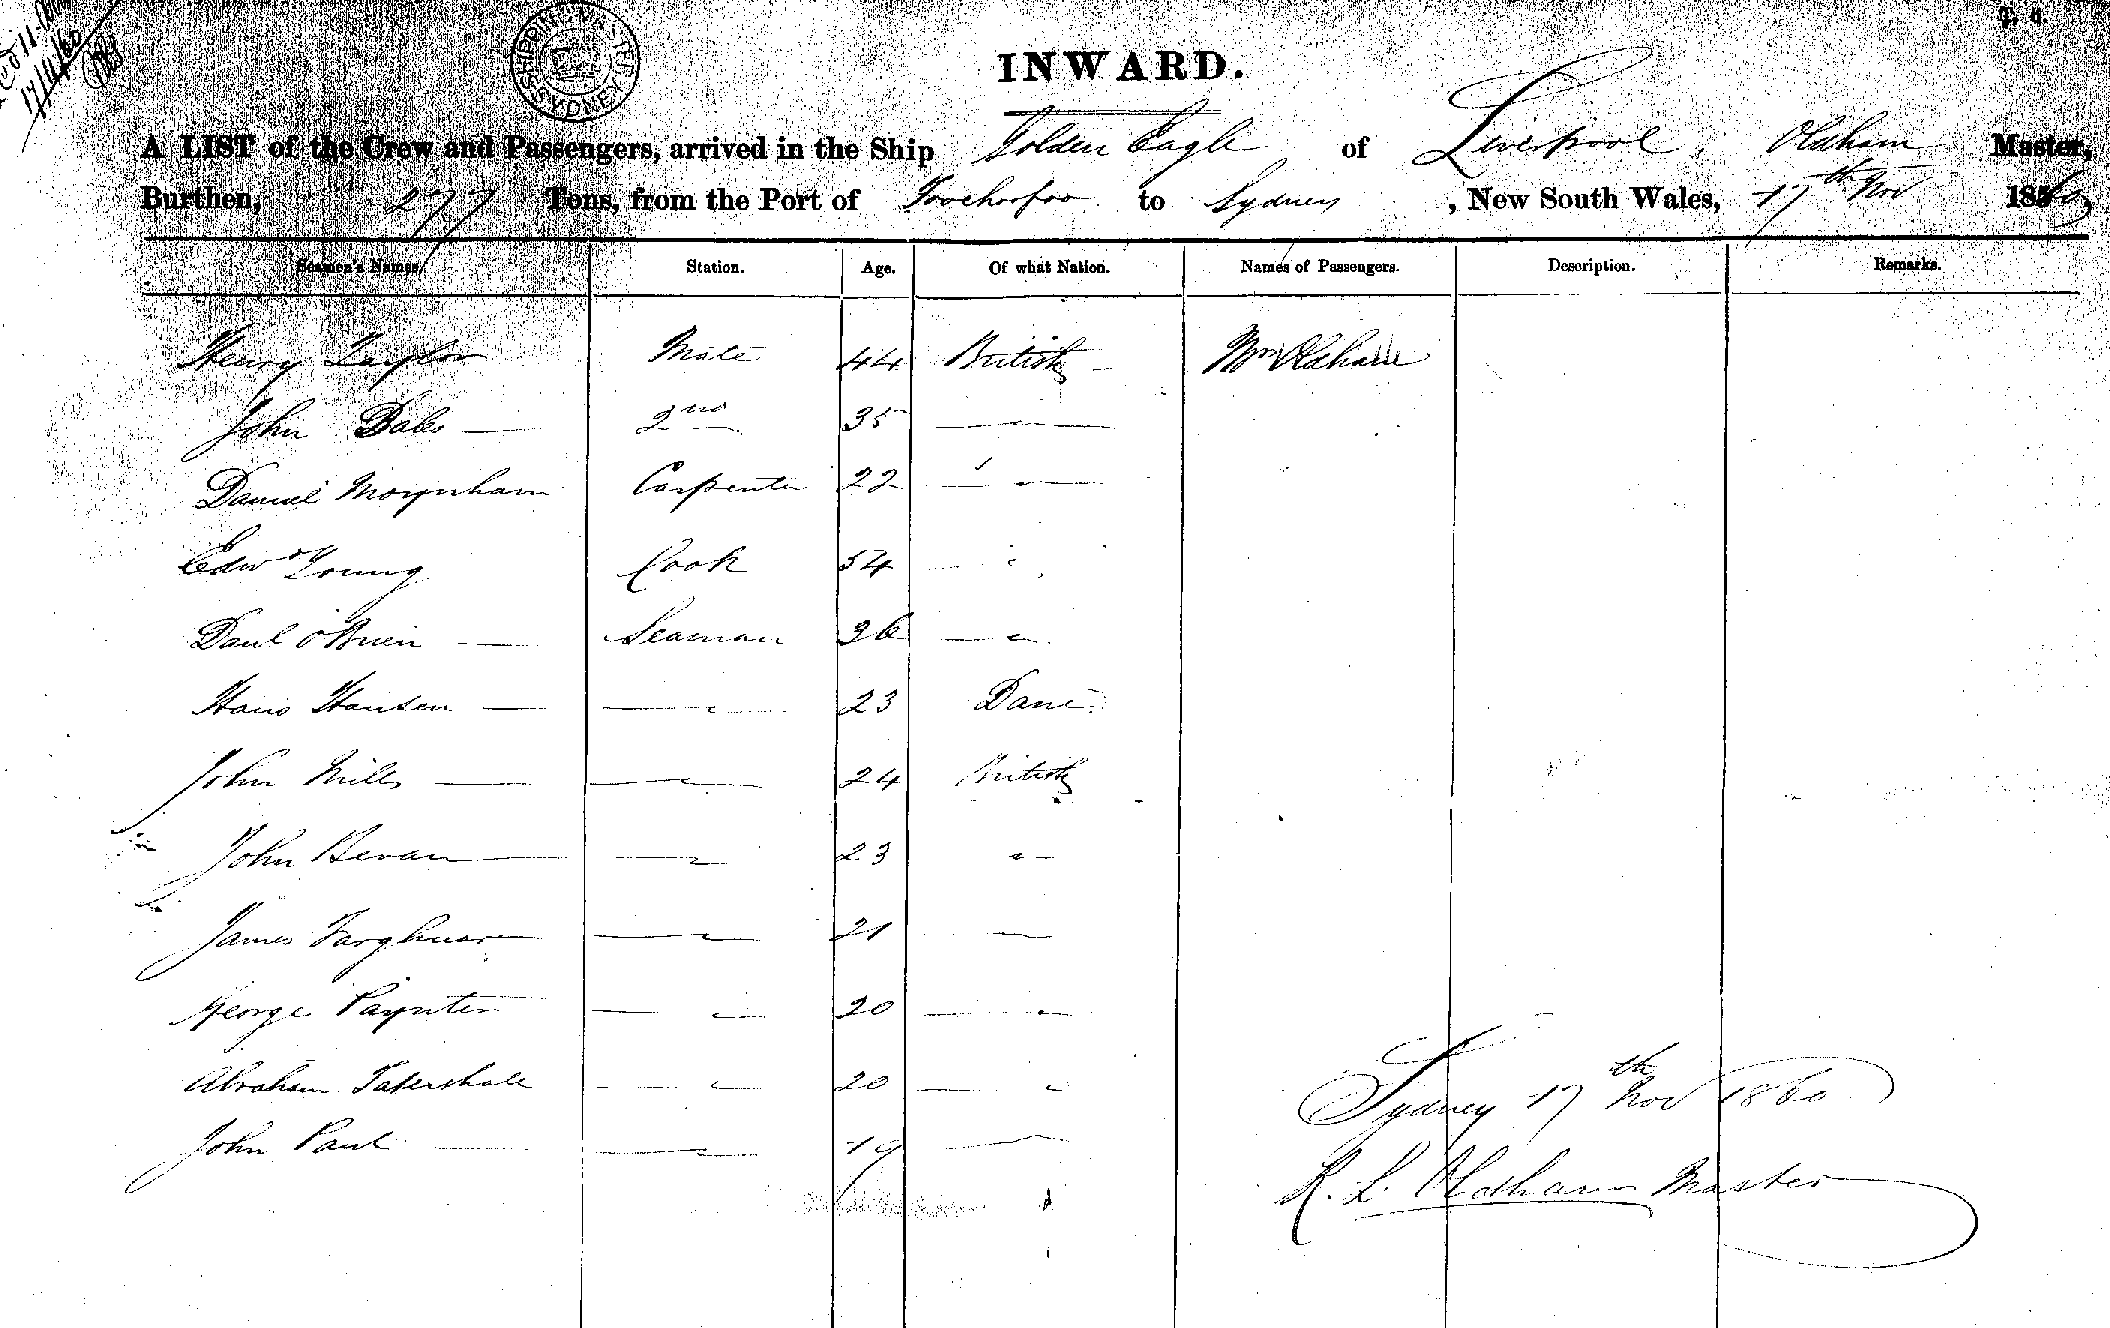 17/11/60
SHIPPING MASTER SYDNEY
INWARD.
A LIST of the Crew and Passengers, arrived in the Ship Golden Eagle of Liverpool, Oldham Master,
Burthen, 277 Tons, from the Port of Foochoofoo to Sydney, New South Wales, 17th Nov 1860,
Seamen's Names. Station. Age. Of what Nation. Names of Passengers. Description. Remarks.
Henry Taylor Mate 44 British Mrs Oldham
John Bales — 2nd 35 — " —
Daniel Moynham Carpenter 22 — " —
Edwd Young Cook 54 — "
Danl O'Brien — Seaman 36 — "
Hans Hansen — — " — 23 Dane
John Mills — — " — 24 British
John Bevan — — " — 23 " —
James Farghuar — " — 21 —
George Paynter — " — 20 — " —
Abraham Tatershale — " 20 — "
John Paul — — " — 19 —
Sydney 17th Nov 1860
R. L. Oldham Master